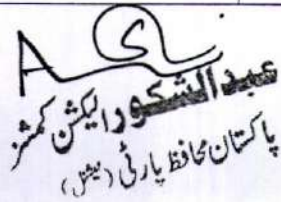 عبدالشکور الیکشن کمشنر
پاکستان محافظ پارٹی (نیشنل)